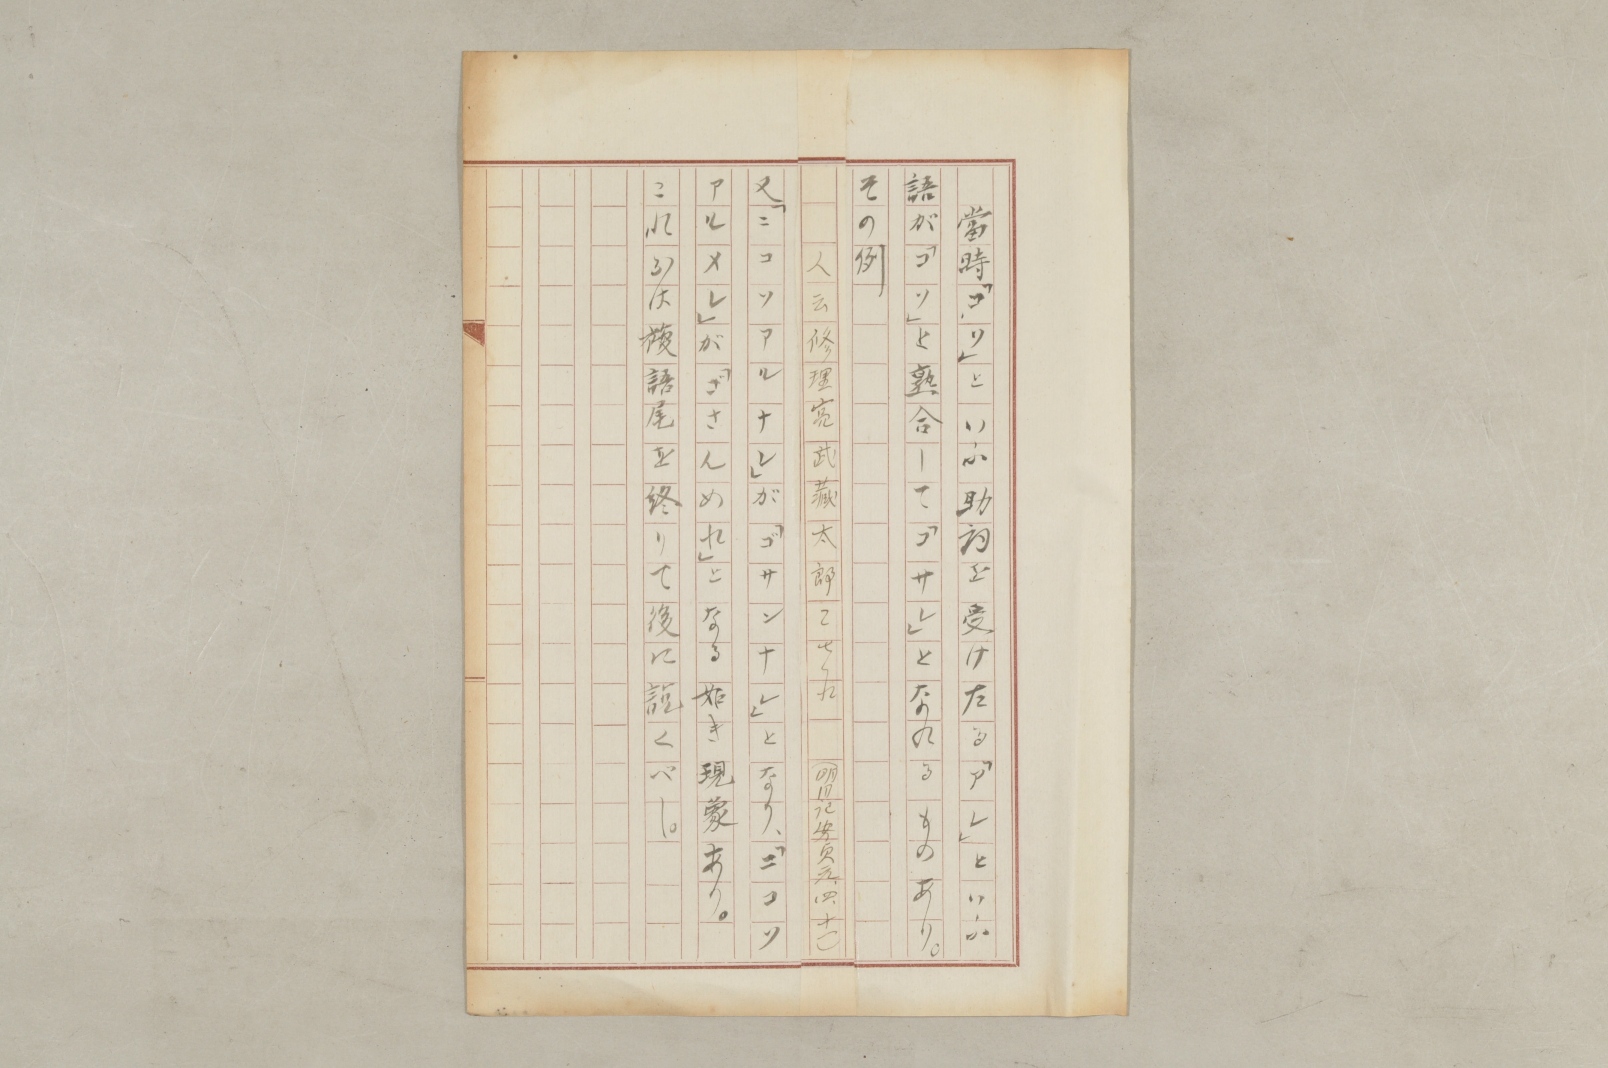 當時「コソ」といふ助詞を受けたる「アレ」といふ
語が「コソ」と熟合して「ゴサレ」となれるものあり。
その例
人云修理亮武藏太郎こそ〱れ (明月記安貞元、四、十一)
又「ニコソアルナレ」が「ゴサンナレ」となり、「ニコソ
アルメレ」が「ござんめれ」となる如き現象あり。
これらは複語尾を終りて後に説くべし。